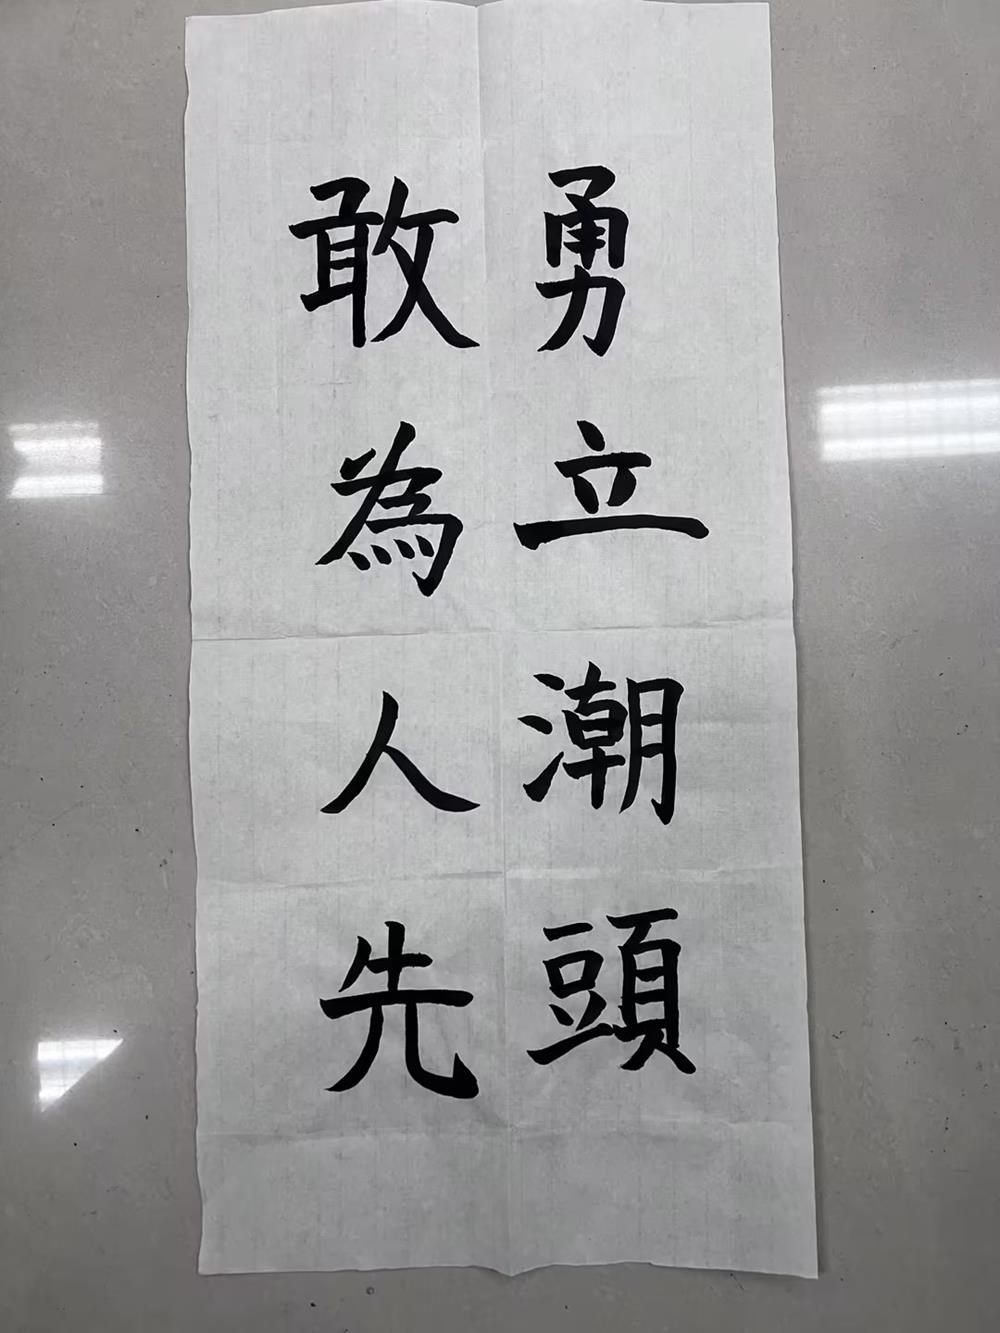 勇立潮頭
敢為人先